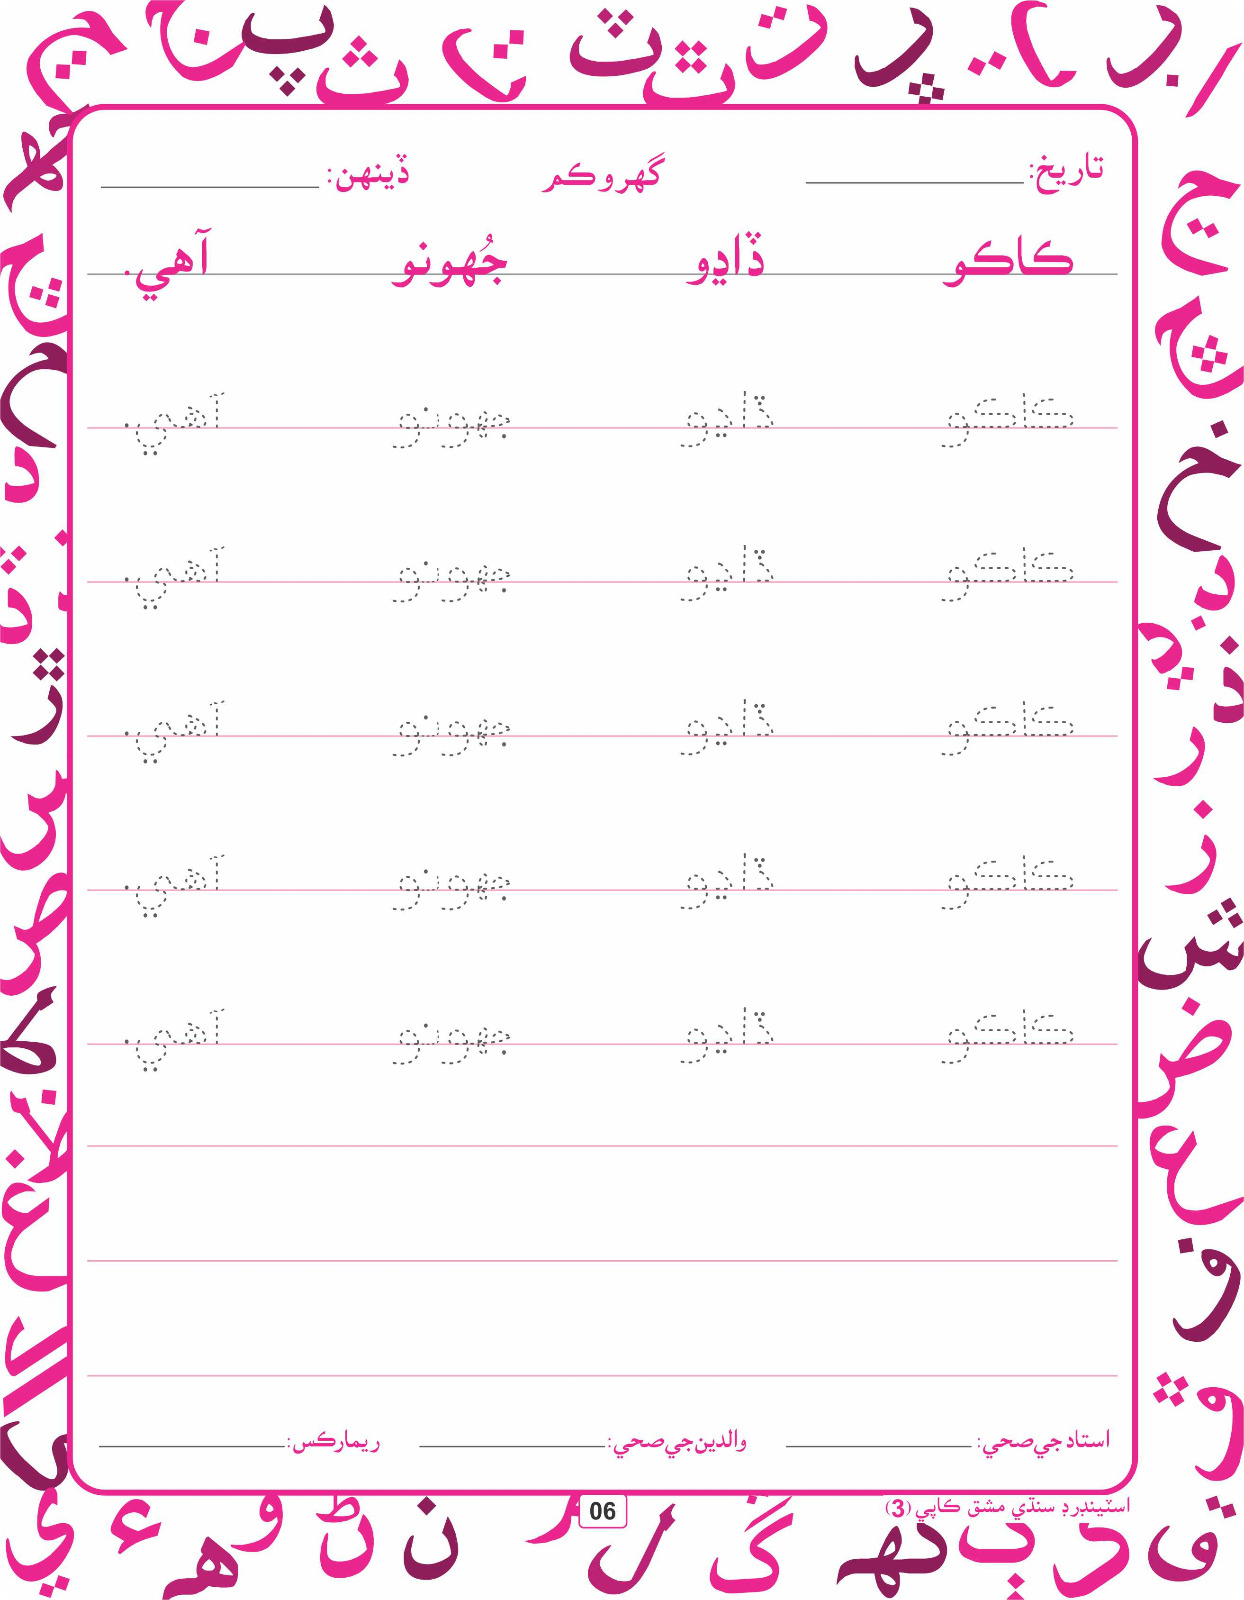 تاريخ: گهرو ڪم ڏينهن:
ڪاڪو ڏاڍو جُهونو آهي.
ڪاڪو ڏاڍو جهونو آهي.
ڪاڪو ڏاڍو جهونو آهي.
ڪاڪو ڏاڍو جهونو آهي.
ڪاڪو ڏاڍو جهونو آهي.
ڪاڪو ڏاڍو جهونو آهي.
استاد جي صحي: والدين جي صحي: ريمارڪس:
اسٽينڊرڊ سنڌي مشق ڪاپي (3)
06